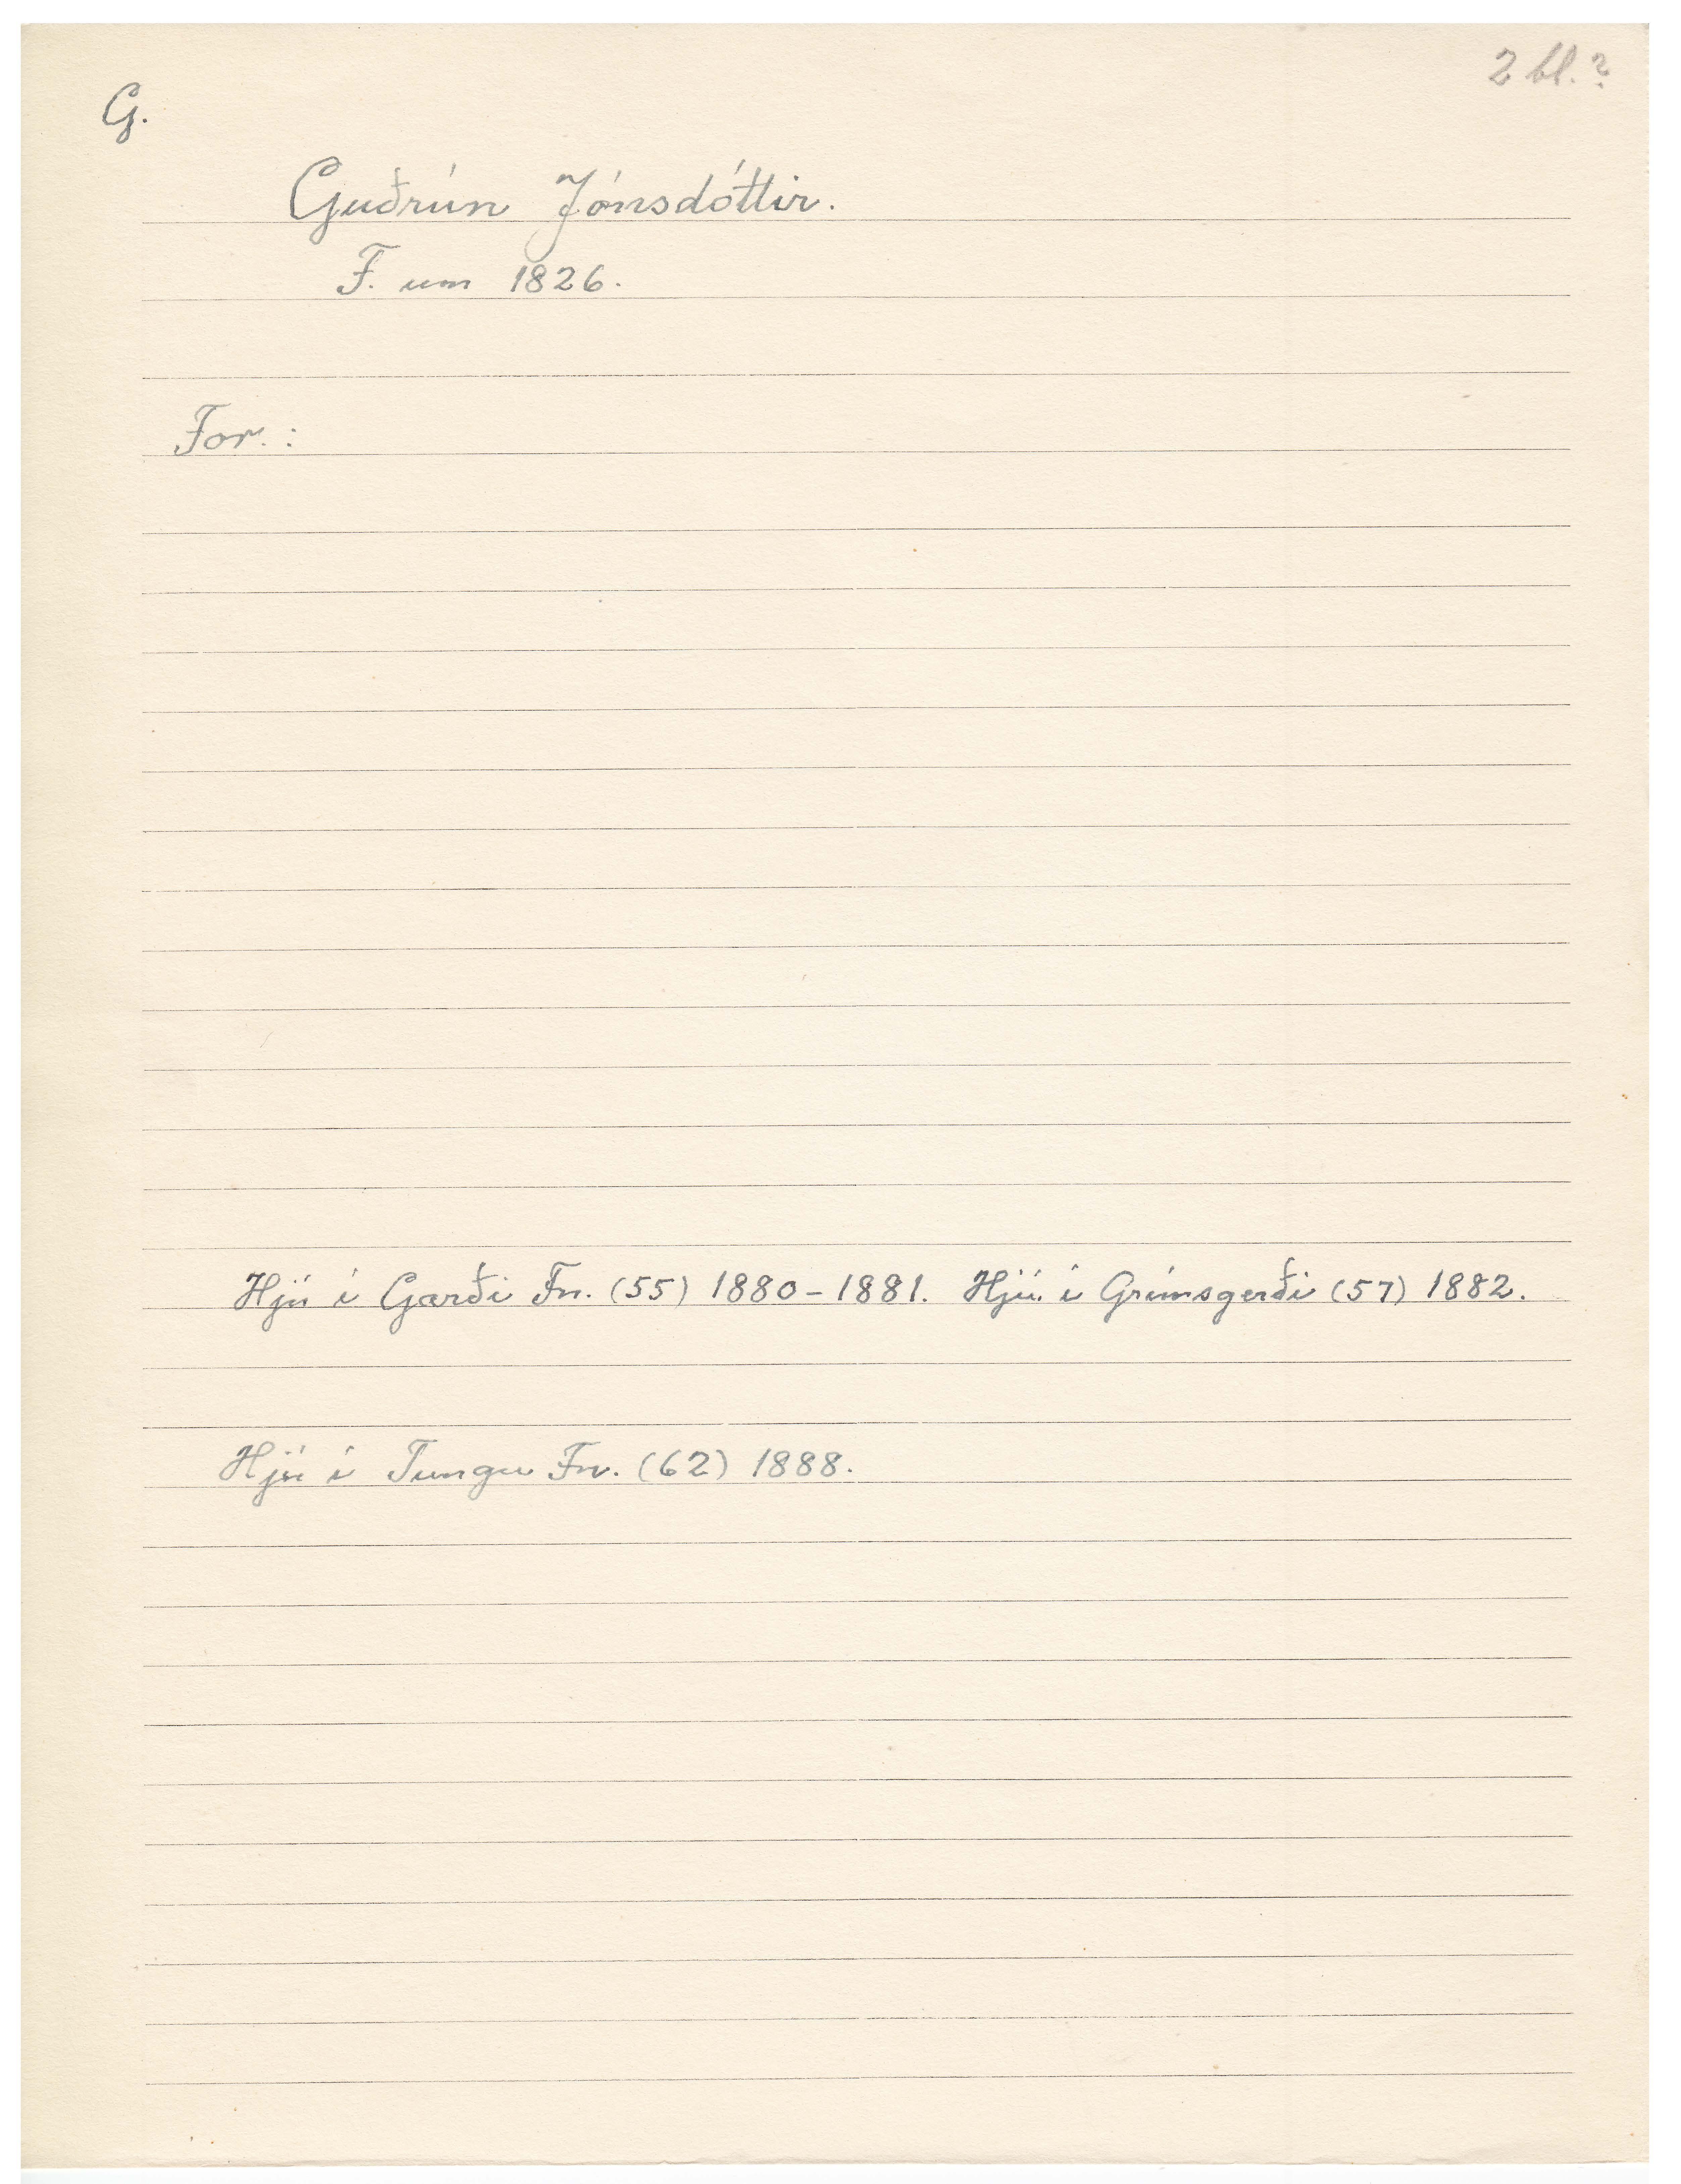 2 bl.?
G.
Guðrún Jónsdóttir.
F. um 1826.
For.:
Hjú í Garði Fn. (55) 1880-1881. Hjú í Grímsgerði (57) 1882.
Hjú í Tungu Fn. (62) 1888.